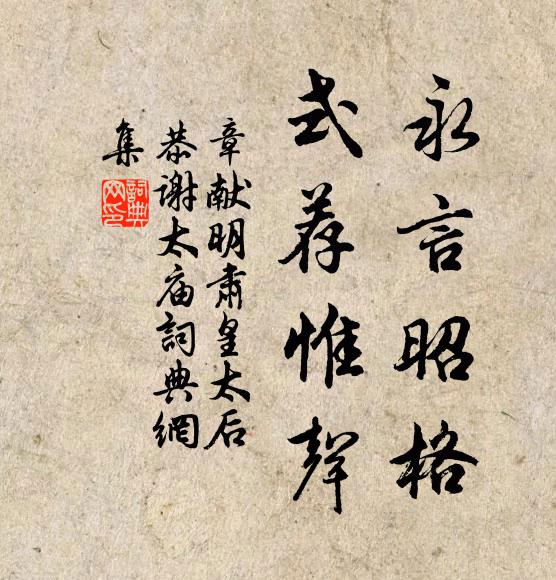 永言昭格
式荐惟聲
章献明肃皇太后
恭谢太庙詞典網
集
詞典
网印